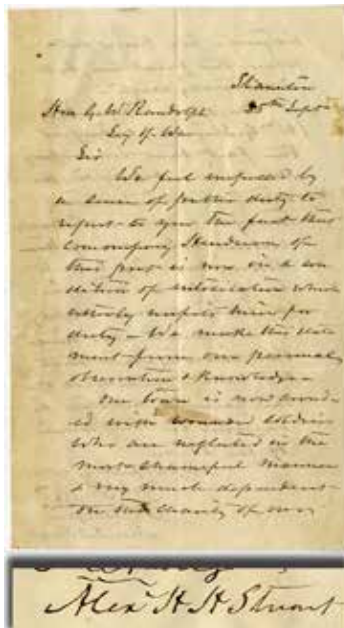 Staunton
Hon G. W. Randolph 25th Sept
Secy of War
Sir
We feel impelled by
a sense of public duty to
report to you the fact that
Henderson of
this post is now in a con
dition of intoxication which
utterly unfits him for
duty - We make this state
ment from our personal
observation & knowledge -
Our town is now crowd
ed with wounded soldiers
who are neglected in the
most shameful manner
& very much dependent
on the charity of our
Alex H H Stuart